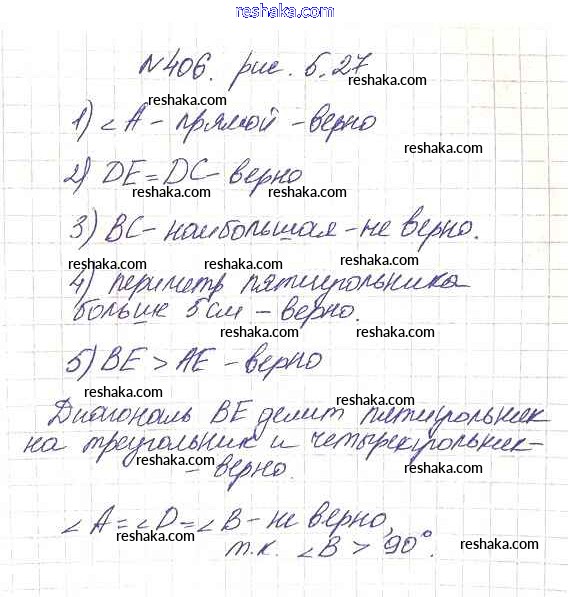 reshaka.com
N 406. рис. 5.27
reshaka.com
reshaka.com
1) ∠A - прямой - верно
reshaka.com
2) DE = DC - верно
reshaka.com reshaka.com
3) BC - наибольшая - не верно.
reshaka.com reshaka.com
4) периметр пятиугольника
больше 5 см - верно.
reshaka.com reshaka.com
5) BE > AE - верно
reshaka.com reshaka.com
Диагональ BE делит пятиугольник
на треугольник и четырехугольник -
reshaka.com reshaka.com
- верно.
∠A = ∠D = ∠B - не верно,
reshaka.com reshaka.com
т.к. ∠B > 90°.